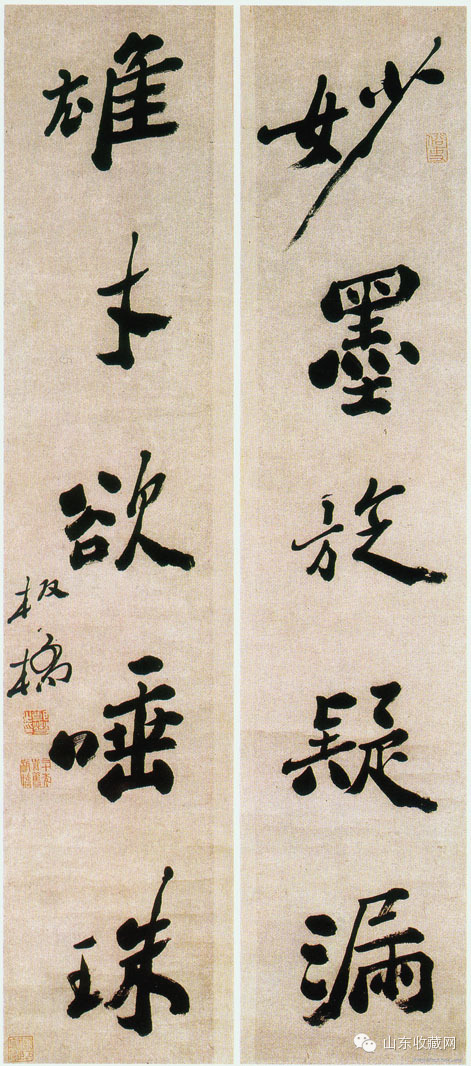 妙墨旋疑漏
雄才欲唾珠
板橋
山东收藏网